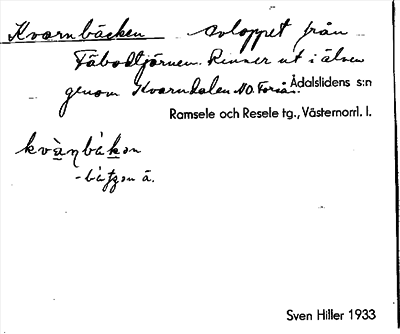 Kvarnbäcken avloppet från
Fäbodtjörnen. Rinner ut i älven
genom Kvarndalen NO. Forså. Ådalslidens s:n
Ramsele och Resele tg., Västernorrl. l.
kvà̱ŋbàḵən
Sven Hiller 1933